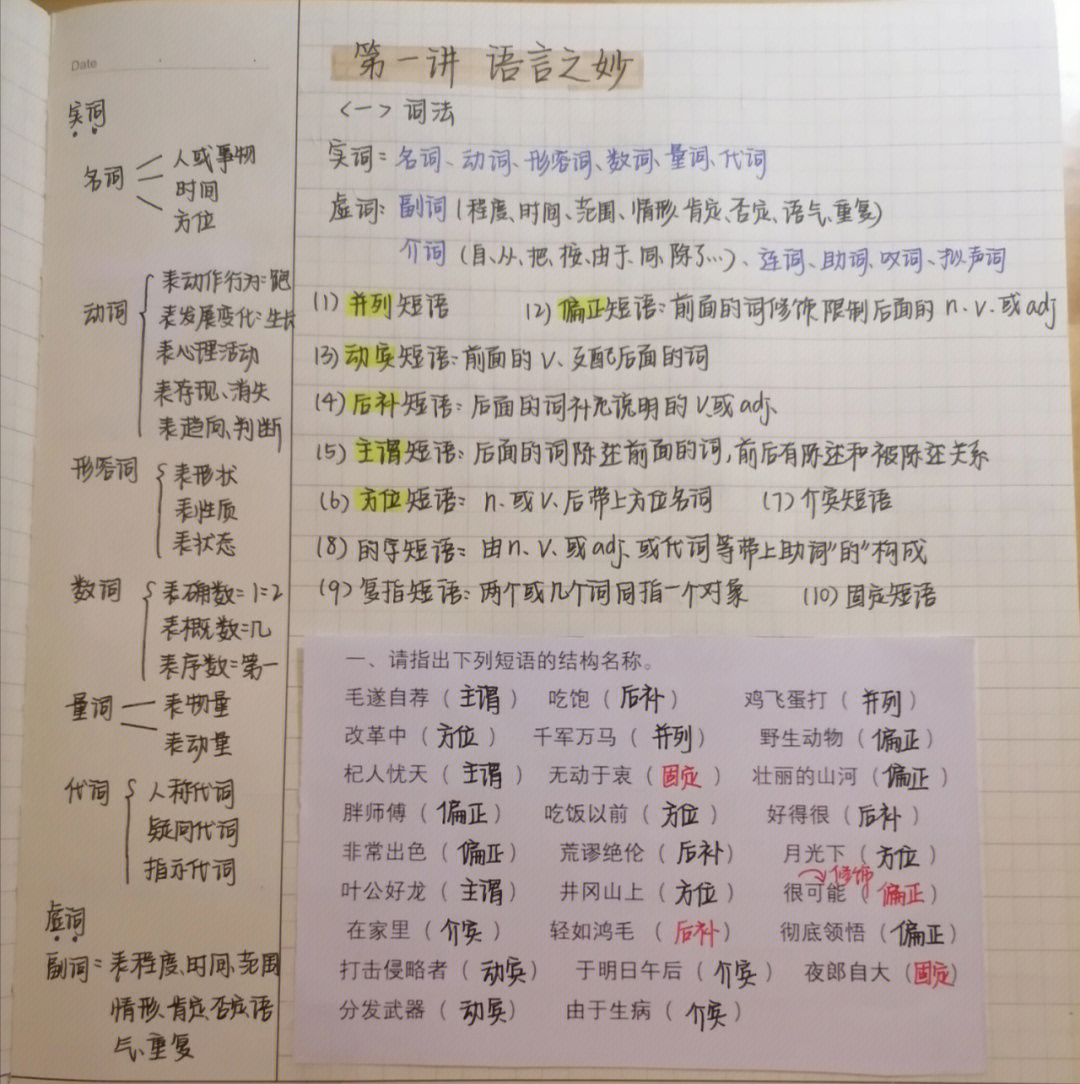 Date
实词
名词
人或事物
时间
方位
动词
表动作行为:跑
表发展变化:生长
表心理活动
表存现、消失
表趋向、判断
形容词
表形状
表性质
表状态
数词
表确数=1=2
表概数=几
表序数=第一
量词
表物量
表动量
代词
人称代词
疑问代词
指示代词
虚词
副词=表程度、时间、范围
情形、肯定、否定、语
气、重复
第一讲 语言之妙
<一> 词法
实词=名词、动词、形容词、数词、量词、代词
虚词:副词(程度、时间、范围、情形、肯定、否定、语气、重复)
介词(自、从、把、按、由于、同、除了...)、连词、助词、叹词、拟声词
(1) 并列短语 (2) 偏正短语:前面的词修饰、限制后面的 n. v. 或 adj
(3) 动宾短语:前面的 v. 支配后面的词
(4) 后补短语:后面的词补充说明的 v.或 adj.
(5) 主谓短语:后面的词陈述前面的词,前后有陈述和被陈述关系
(6) 方位短语:n. 或 v. 后带上方位名词 (7) 介宾短语
(8) 的字短语:由 n. v. 或 adj. 或代词等带上助词"的"构成
(9) 复指短语:两个或几个词同指一个对象 (10) 固定短语
一、请指出下列短语的结构名称。
毛遂自荐(主谓) 吃饱(后补) 鸡飞蛋打(并列)
改革中(方位) 千军万马(并列) 野生动物(偏正)
杞人忧天(主谓) 无动于衷(固定) 壮丽的山河(偏正)
胖师傅(偏正) 吃饭以前(方位) 好得很(后补)
非常出色(偏正) 荒谬绝伦(后补) 月光下(方位)
修饰
叶公好龙(主谓) 井冈山上(方位) 很可能(偏正)
在家里(介宾) 轻如鸿毛(后补) 彻底领悟(偏正)
打击侵略者(动宾) 于明日午后(介宾) 夜郎自大(固定)
分发武器(动宾) 由于生病(介宾)